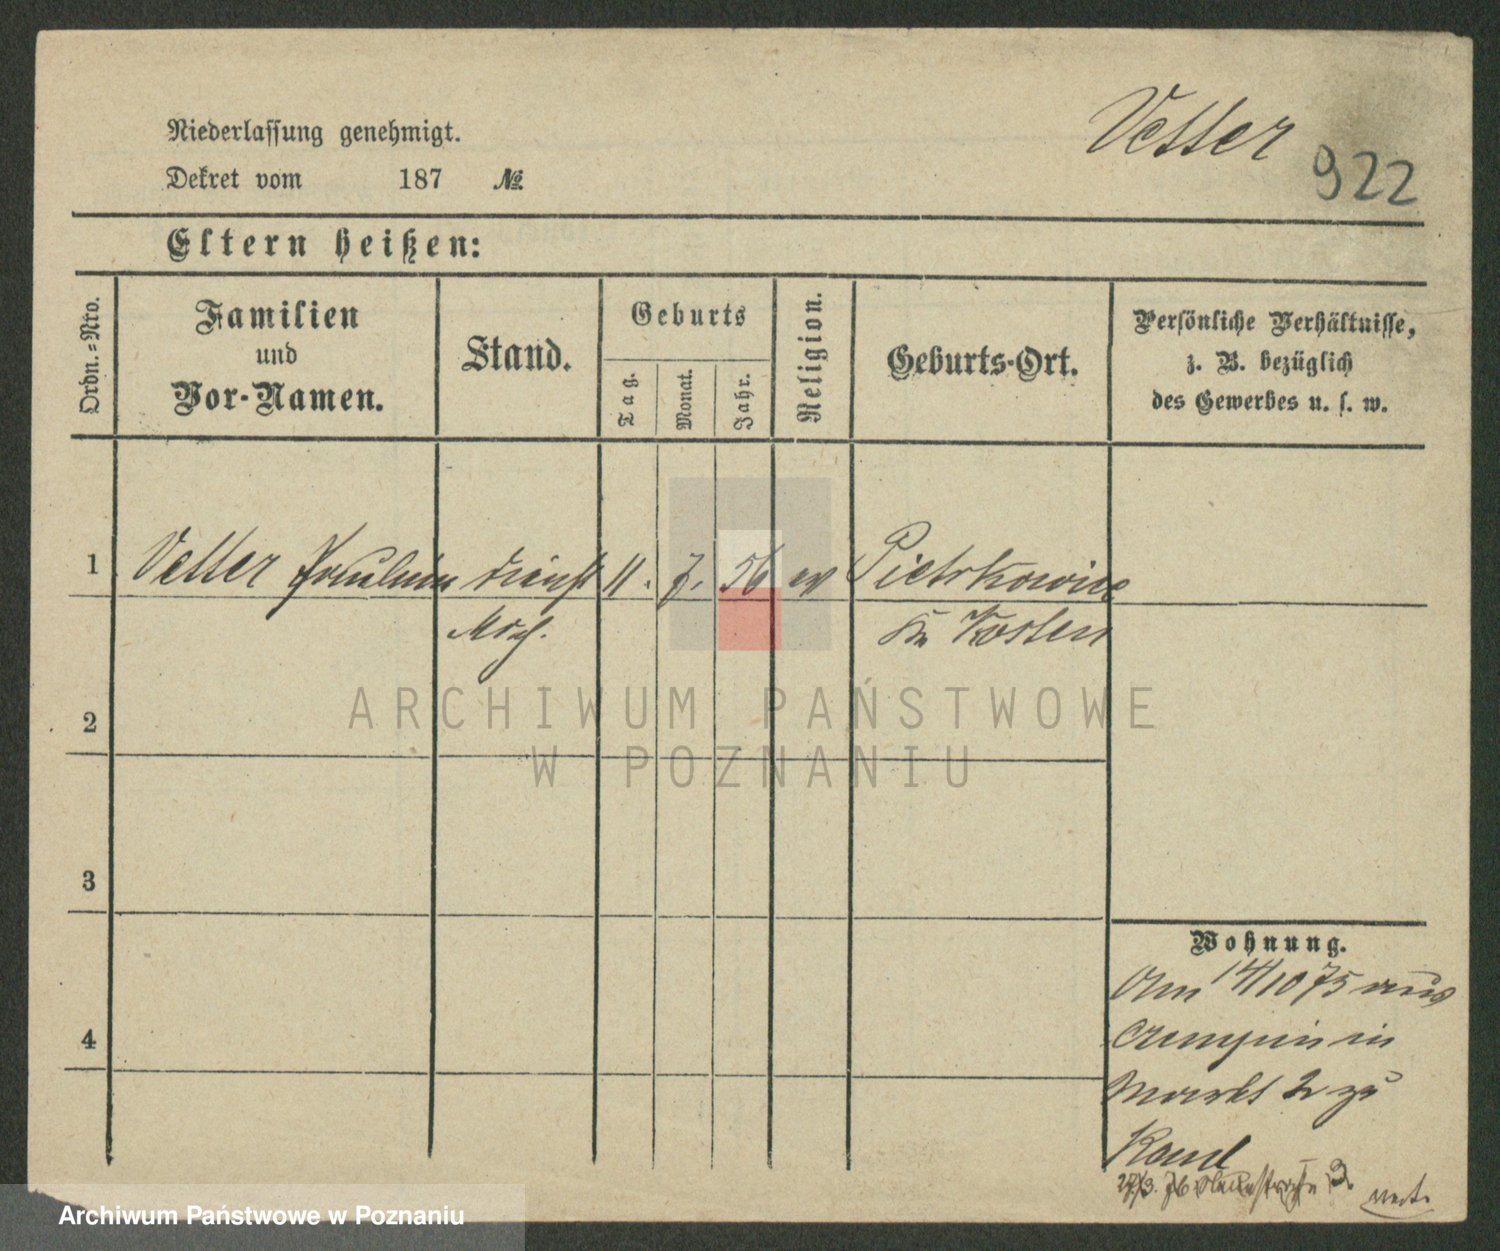 Vetter
922
Niederlassung genehmigt.
Dekret vom 187 №
Eltern heißen:
Ordn.-Nro.
Familien
und
Vor-Namen.
Stand.
Geburts
Tag.
Monat.
Jahr.
Religion.
Geburts-Ort.
Persönliche Verhältnisse,
z. B. bezüglich
des Gewerbes u. s. w.
1 Vetter Pauline dienst 11. 7. 56 ev Pietrkowice
Kr Kosten
2
3
4
Wohnung.
Am 14/10 75 aus
in
Markt 2 zu
27/3. 76 3.
vert.
ARCHIWUM PAŃSTWOWE
W POZNANIU
Archiwum Państwowe w Poznaniu